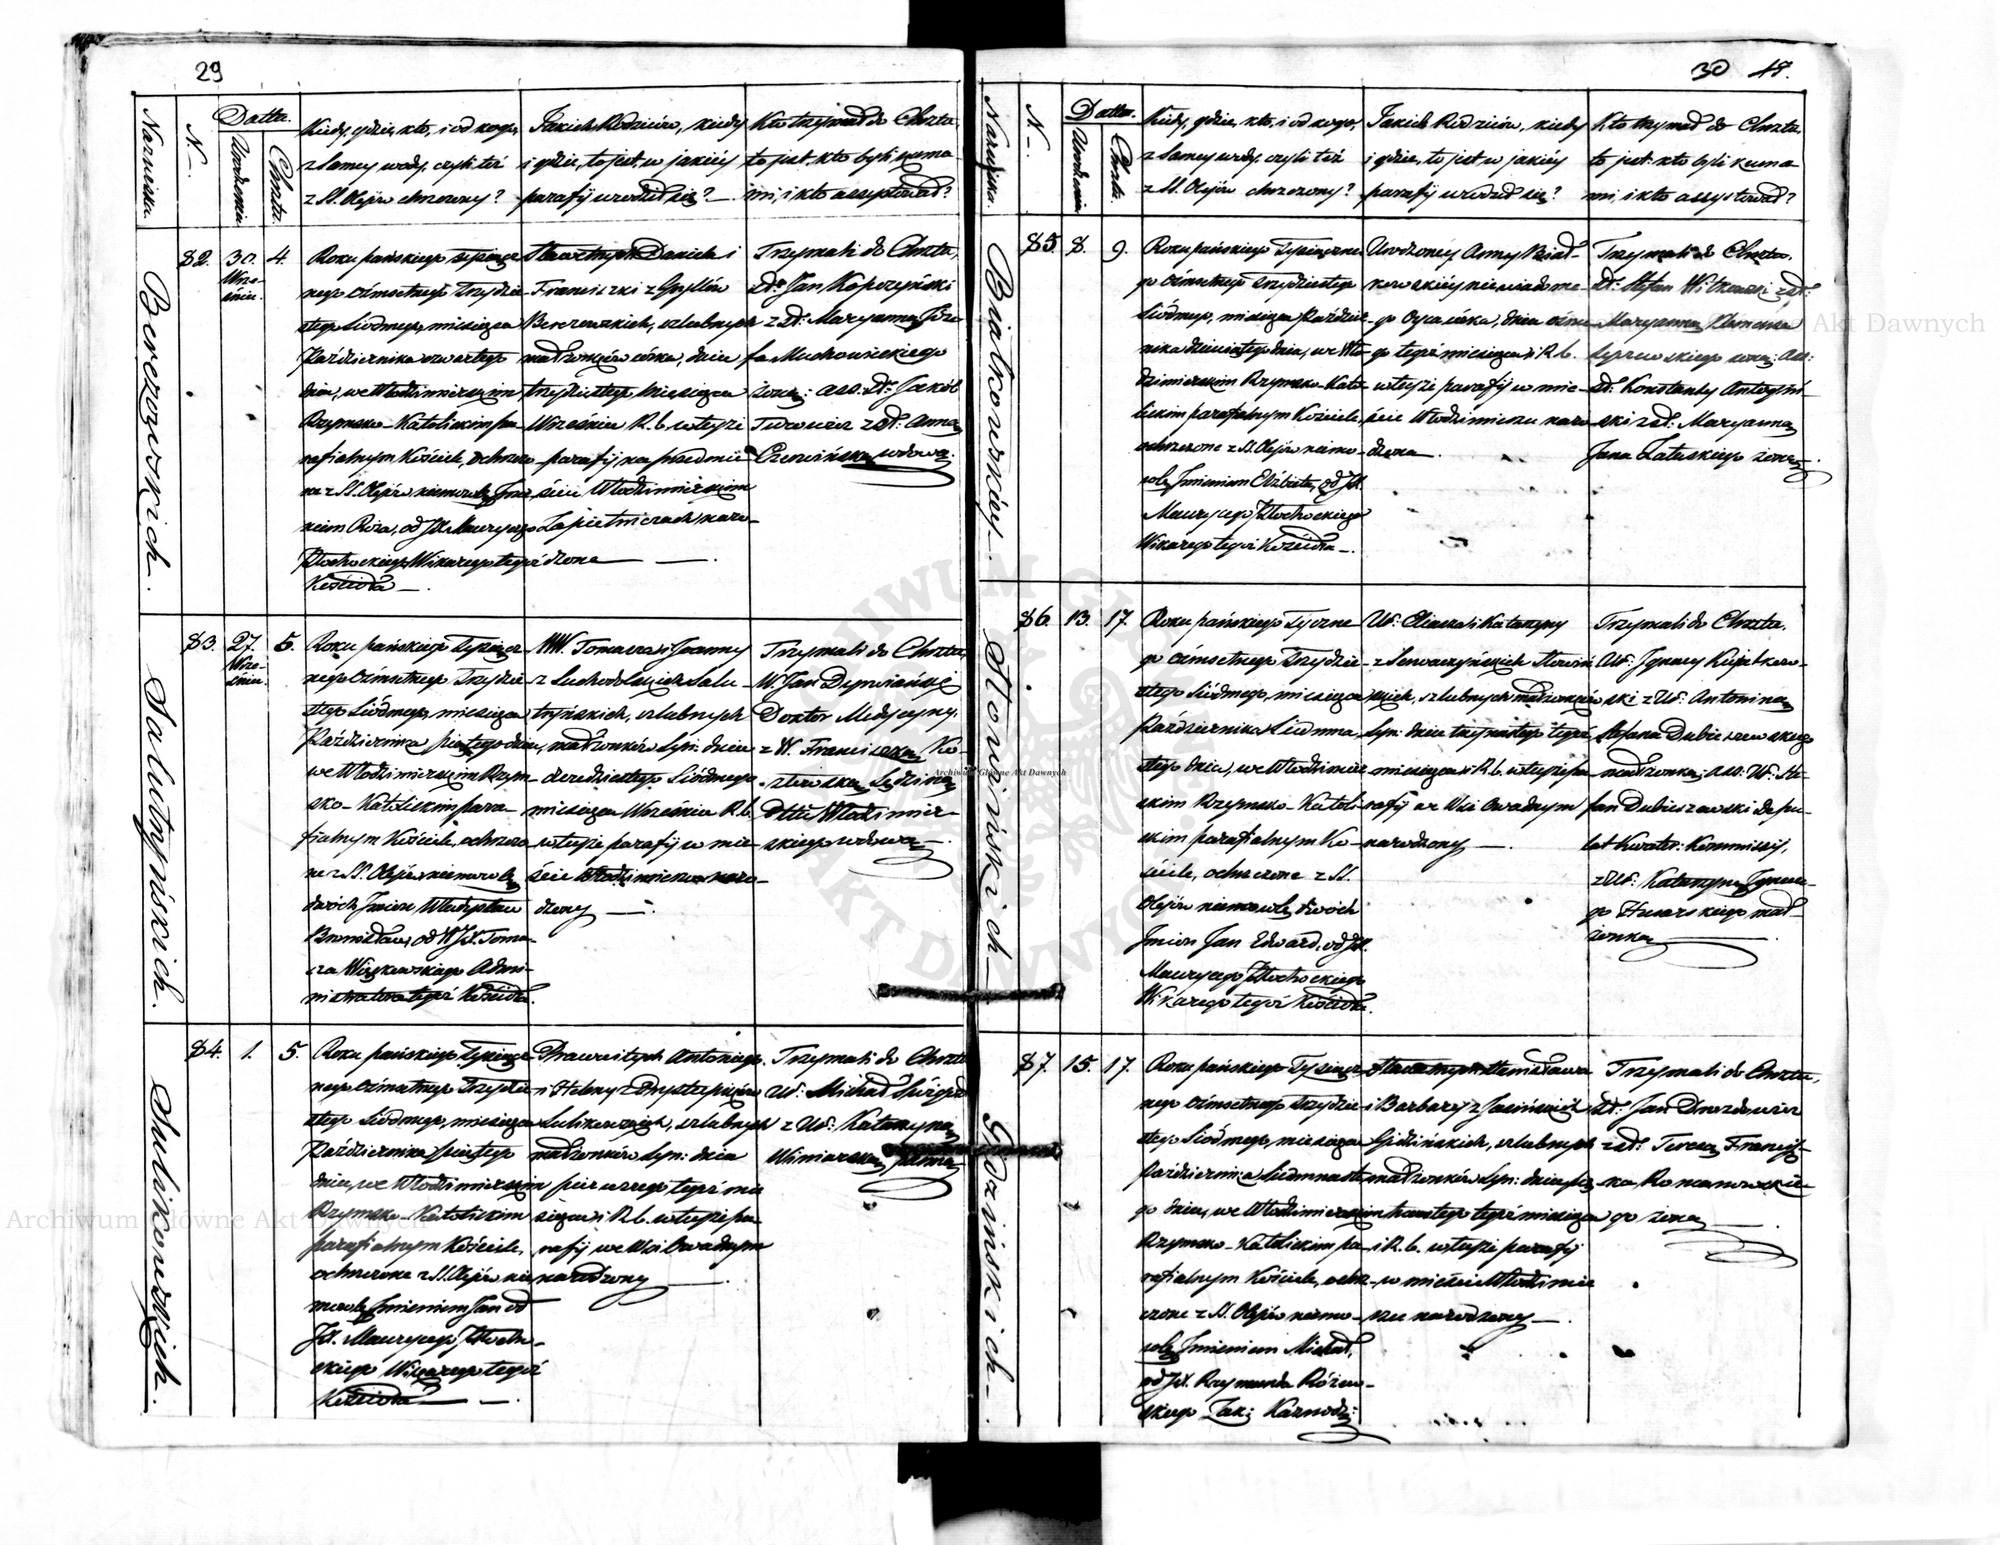 29
Nazwiska.
N.
Datta.
Urodzenia
Chrztu.
Kiedy, gdzie, kto, i od kogo,
z Samey wody, czyli téż
z SS. Olejów chrzczony?
Jakich Rodziców, kiedy
i gdzie, to jest, w jakiéy
parafij urodził się?
Kto trzymał do Chrztu,
to jest, kto byli kuma-
mi, i kto assystował?
Berezowskich.
82.
30.
Wrze-
śnia.
4.
Roku pańskiego tysiącz-
nego ósmsetnego trzydzie-
stego siódmego, miesiąca
Października czwartego
dnia, we Włodzimierskim
Rzymsko-Katolickim pa-
rafialnym Kościele, ochrzczo-
ne z SS. Olejów niemowlę Imie-
niem Róża, od JX. Maurycego
Kłochockiego Wikarego tegoż
Kościoła.
Sławetnych Daniela i
Franciszki z
Berezowskich, szlubnych
małżonków córka, dnia
trzydziestego miesiąca
Września R. b. w tejże
parafij na przedmie-
ściu Włodzimierskim
naro-
dzona
Trzymali do Chrztu,
Sł. Jan Kopczyński
z Sł. Maryanną Józe-
fa Muchowieckiego
żoną: ass: Sł. Jakób
z Sł: Anną
Czerwińską wdową.
Salutryńskich.
83.
27.
Wrze-
śnia.
5.
Roku pańskiego Tysiącz-
nego Ósmsetnego Trzydzie-
stego Siódmego, miesiąca
Października piątego dnia,
we Włodzimierskim Rzym-
sko-Katolickim para-
fialnym Kościele, ochrzczo-
ne z SS. Olejów niemowlę
dwóch Imion Władysław
Bronisław, od WJX. Toma-
sza Więckowskiego Admi-
nistratora tegoż Kościoła.
WW. Tomasza i Joanny
z Suchodolskich Salu-
tryńskich, szlubnych
małżonków Syn: dnia
dwudziestego Siódmego
miesiąca Września R. b.
w tejże parafij w mie-
ście Włodzimierzu naro-
dzony
Trzymali do Chrztu,
W. Jan
Doktor Medycyny,
z W. Franciszką Ko-
Sędziną
Pttu Włodzimier-
skiego wdową.
Sulikowskich.
84.
1.
5.
Roku pańskiego Tysiącz-
nego Ósmsetnego Trzydzie-
stego Siódmego, miesiąca
Października piątego
dnia, we Włodzimierskim
Rzymsko-Katolickim
parafialnym Kościele,
ochrzczone z SS. Olejów nie-
mowlę Imieniem Jan od
JX. Maurycego Kłocho-
ckiego Wikarego tegoż
Kościoła
Pracowitych Antoniego
i Heleny z
Sulikowskich, szlubnych
małżonków Syn: dnia
pierwszego tegoż mie-
siąca i R. b. w tejże pa-
rafij we Wsi Owadnym
narodzony
Trzymali do Chrztu
Ur: Michał
z Ur. Katarzyną
Winiarską panną
30 48.
Nazwiska.
N.
Datta.
Urodzenia
Chrztu.
Kiedy, gdzie, kto, i od kogo,
z Samey wody, czyli téż
z SS. Olejów chrzczony?
Jakich Rodziców, kiedy
i gdzie, to jest w jakiéy
parafij urodził się?
Kto trzymał do Chrztu,
to jest kto byli kuma-
mi, i kto assystował?
Białkowskiéy.
85.
8.
9.
Roku pańskiego Tysiączne-
go Ósmsetnego Trzydziestego
Siódmego, miesiąca Paździer-
nika dziewiątego dnia, we Wło-
dzimierskim Rzymsko-Kato-
lickim parafialnym Kościele
ochrzczone z SS. Olejów niemo-
wlę Imieniem Elżbieta, od JX.
Maurycego Kłochockiego
Wikarego tegoż Kościoła.
Urodzonéy Anny Biał-
kowskiéy niewiadome-
go Oyca córka, dnia ósme-
go tegoż miesiąca i R. b.
w tejże parafij w mie-
ście Włodzimierzu naro-
dzona
Trzymali do Chrztu,
Sł. Stefan Witkowski z Sł:
Maryanną Klemensa
żoną: ass:
Sł. Konstanty Antoszń-
ski z Sł: Maryanną
Jana Załuskiego żoną.
Słowińskich.
86.
13.
17.
Roku pańskiego Tysiączne-
go ósmsetnego Trzydzie-
stego Siódmego, miesiąca
Października Siedmna-
stego dnia, we Włodzimier-
skim Rzymsko-Katoli-
ckim parafialnym Ko-
ściele, ochrzczone z SS.
Olejów niemowlę dwóch
Imion Jan Edward, od JX.
Maurycego Kłochockiego
Wikarego tegoż Kościoła.
Ur. Eliasza i Katarzyny
z Słowiń-
skich, szlubnych małżonków
Syn: dnia trzynastego tegoż
miesiąca i R. b. w tejże pa-
rafij we Wsi Owadnym
narodzony
Trzymali do Chrztu,
Ur: Ignacy Kwiatkow-
ski z Ur. Antoniną
Stefana Dubiszewskiego
małżonką; ass: Ur. Ste-
fan Dubiszewski Depu-
tat Kwater: Kommissij,
z Ur: Katarzyną Ignace-
go Husarskiego mał-
żonką
Godzińskich.
87.
15.
17.
Roku pańskiego Tysiącz-
nego ósmsetnego trzydzie-
stego Siódmego, miesiąca
Października Siedmnaste-
go dnia, we Włodzimierskim
Rzymsko-Katolickim pa-
rafialnym Kościele, ochrz-
czone z SS. Olejów niemo-
wlę Imieniem Michał,
od JX. Raymunda Różew-
skiego Kaznodz:
Sławetnych Stanisława
i Barbary z Jasińskich
Godzińskich, szlubnych
małżonków Syn: dnia pię-
tnastego tegoż miesiąca
i R. b. w tejże parafij
w mieście Włodzimie-
rzu narodzony
Trzymali do Chrztu,
Sł: Jan Drozdowicz
z Sł: Teresą Francisz-
ka Romanowskie-
go żoną
Archiwum Główne Akt Dawnych